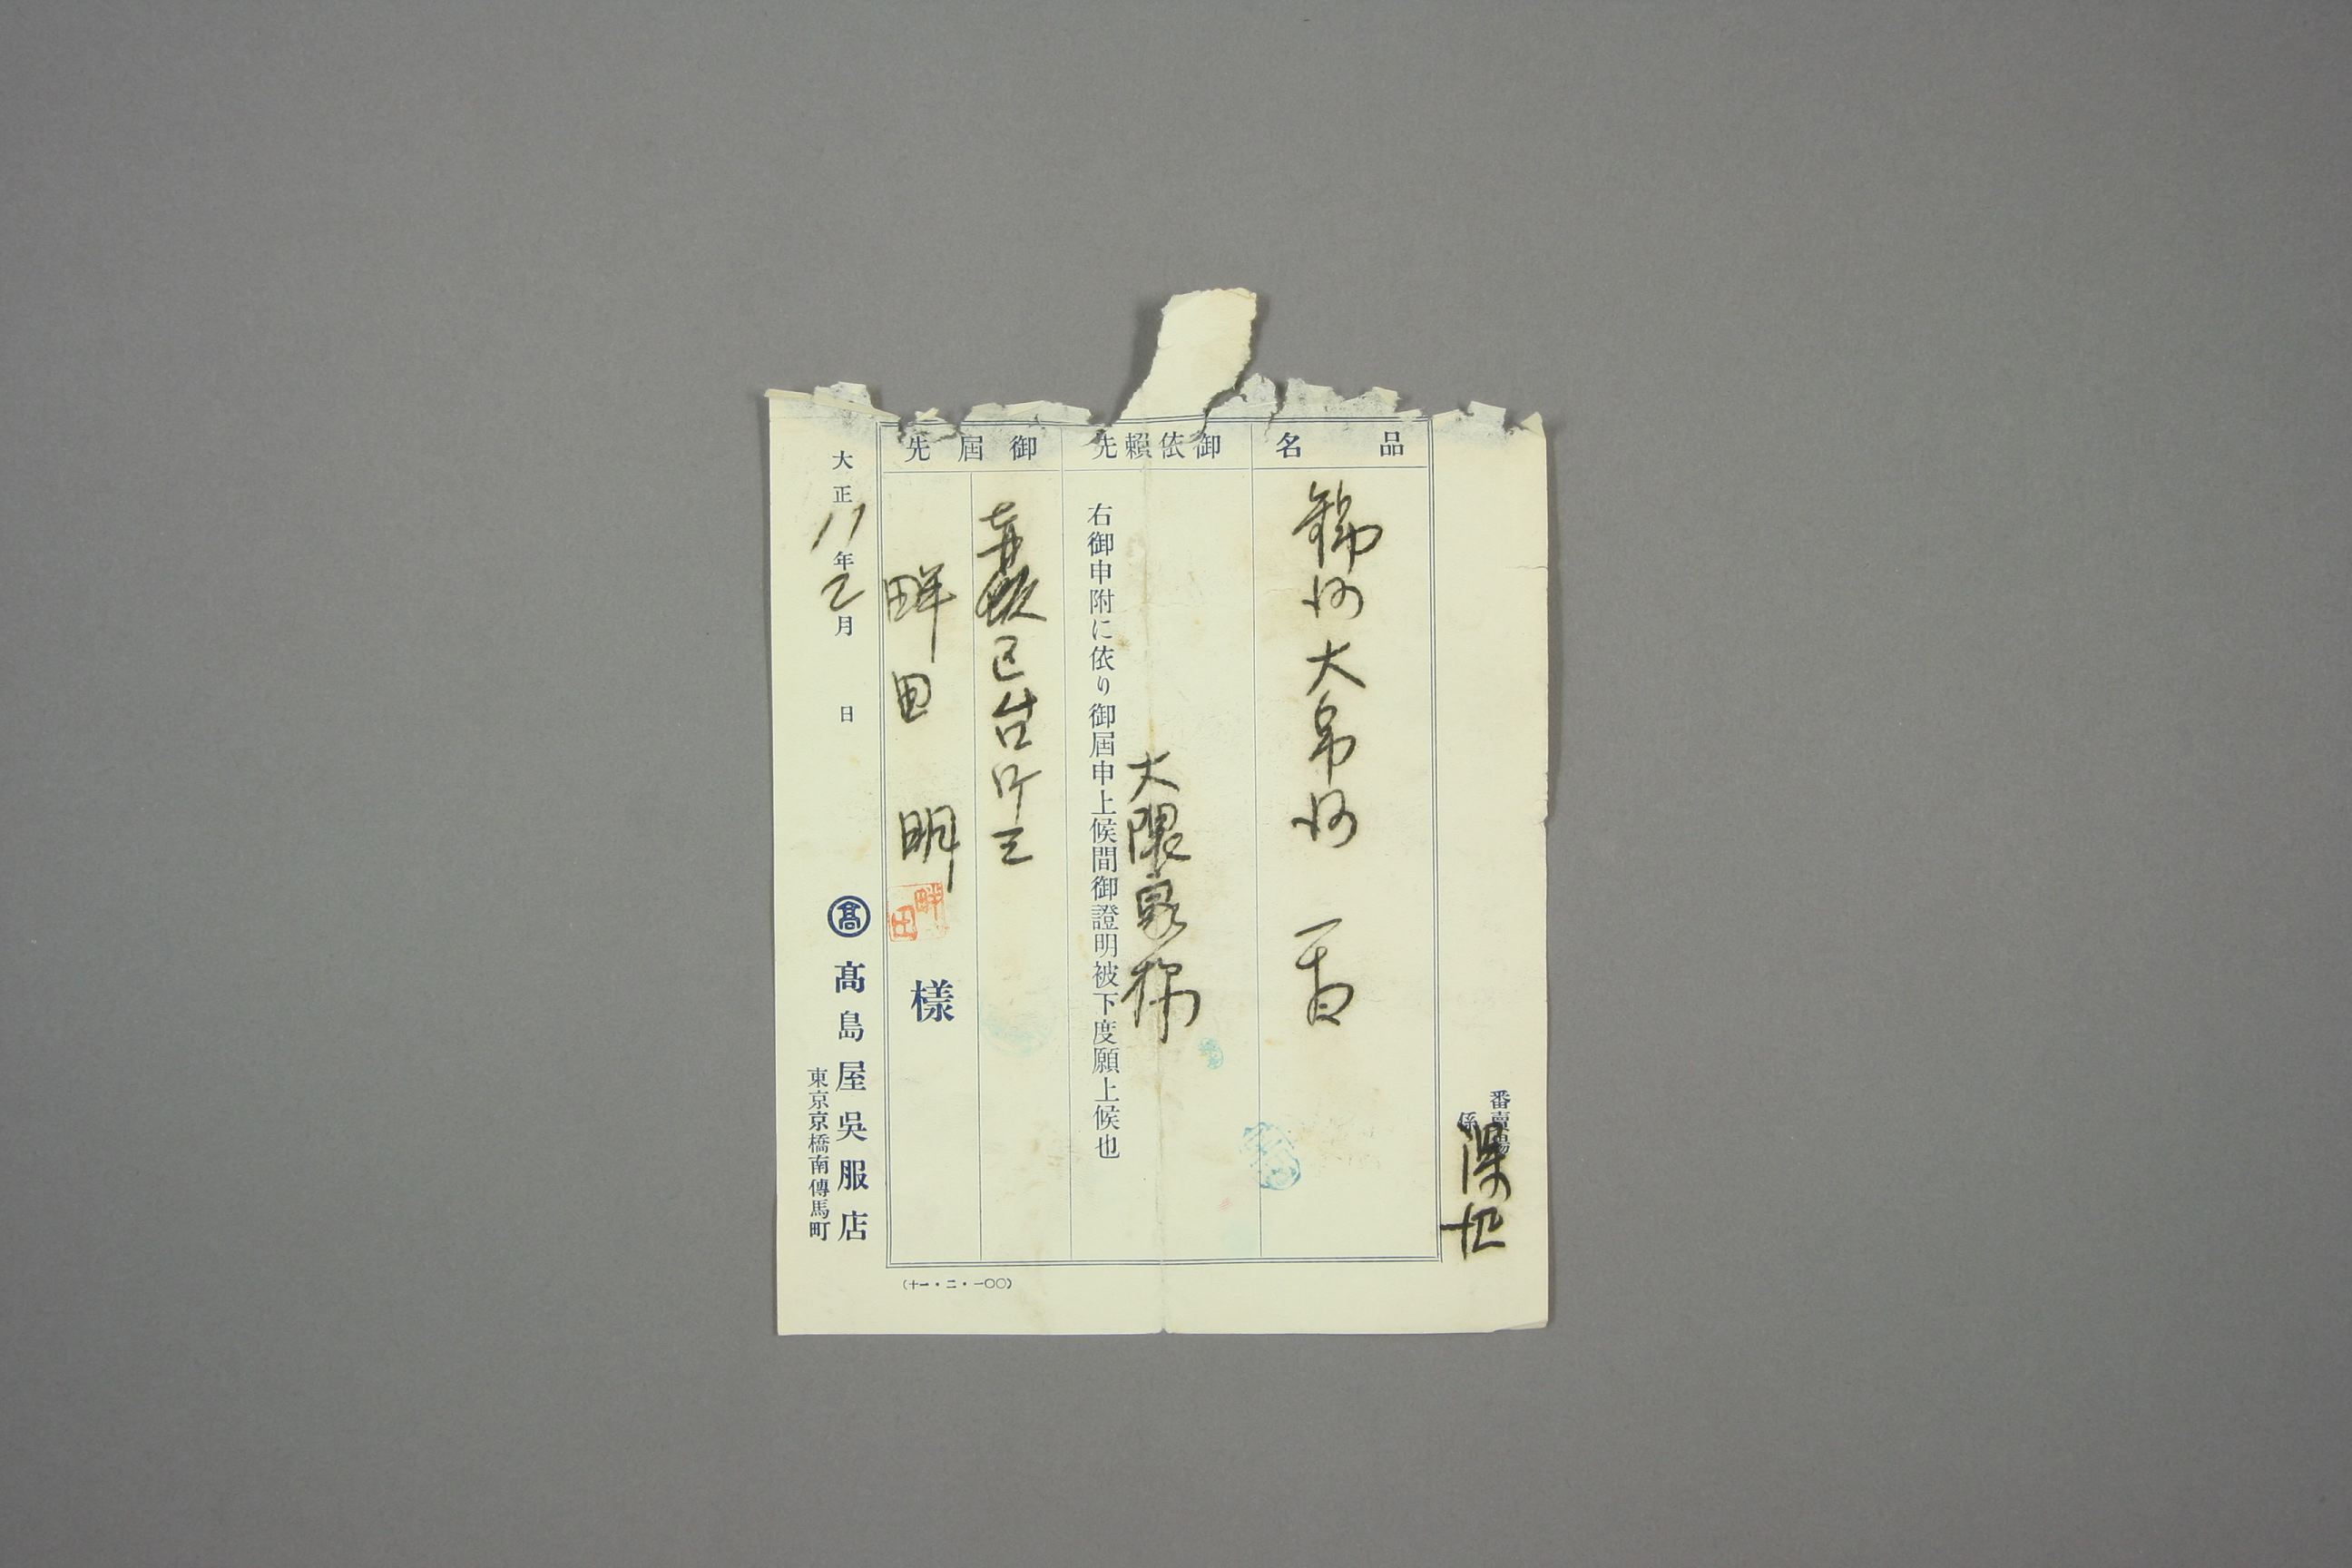 番賣場
係
品名
錦紗大帛紗
御依賴先
大隈家様
右御申附に依り御屆申上候間御證明被下度願上候也
御屆先
赤坂区台町三
畔田 明 樣
畔田
大正11年2月 日
髙 髙島屋吳服店
東京京橋南傳馬町
(十一・二・一〇〇)